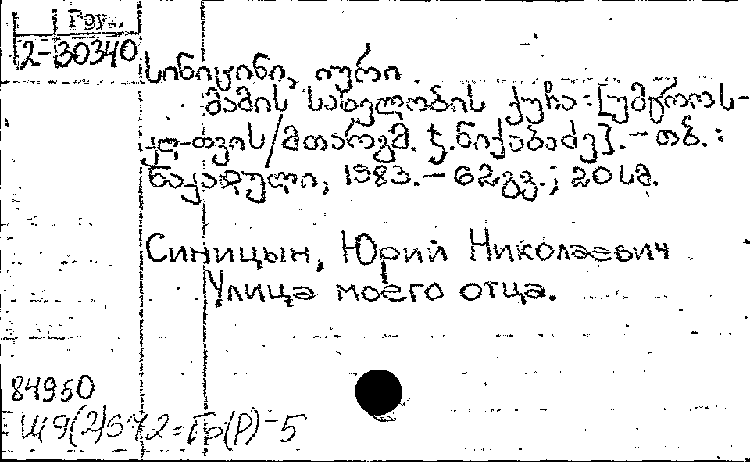 2-30340
სინიცინი, იური.
მამის სახელობის ქუჩა: [უმცროს-
კლ-თვის/მთარგმ. ჯ. ნიქაბაძე]. – თბ.:
ნაკადული, 1983. – 62გვ.; 20სმ.
Синицын, Юрий Николаевич
Улица моего отца.
84950
Ш9(2)